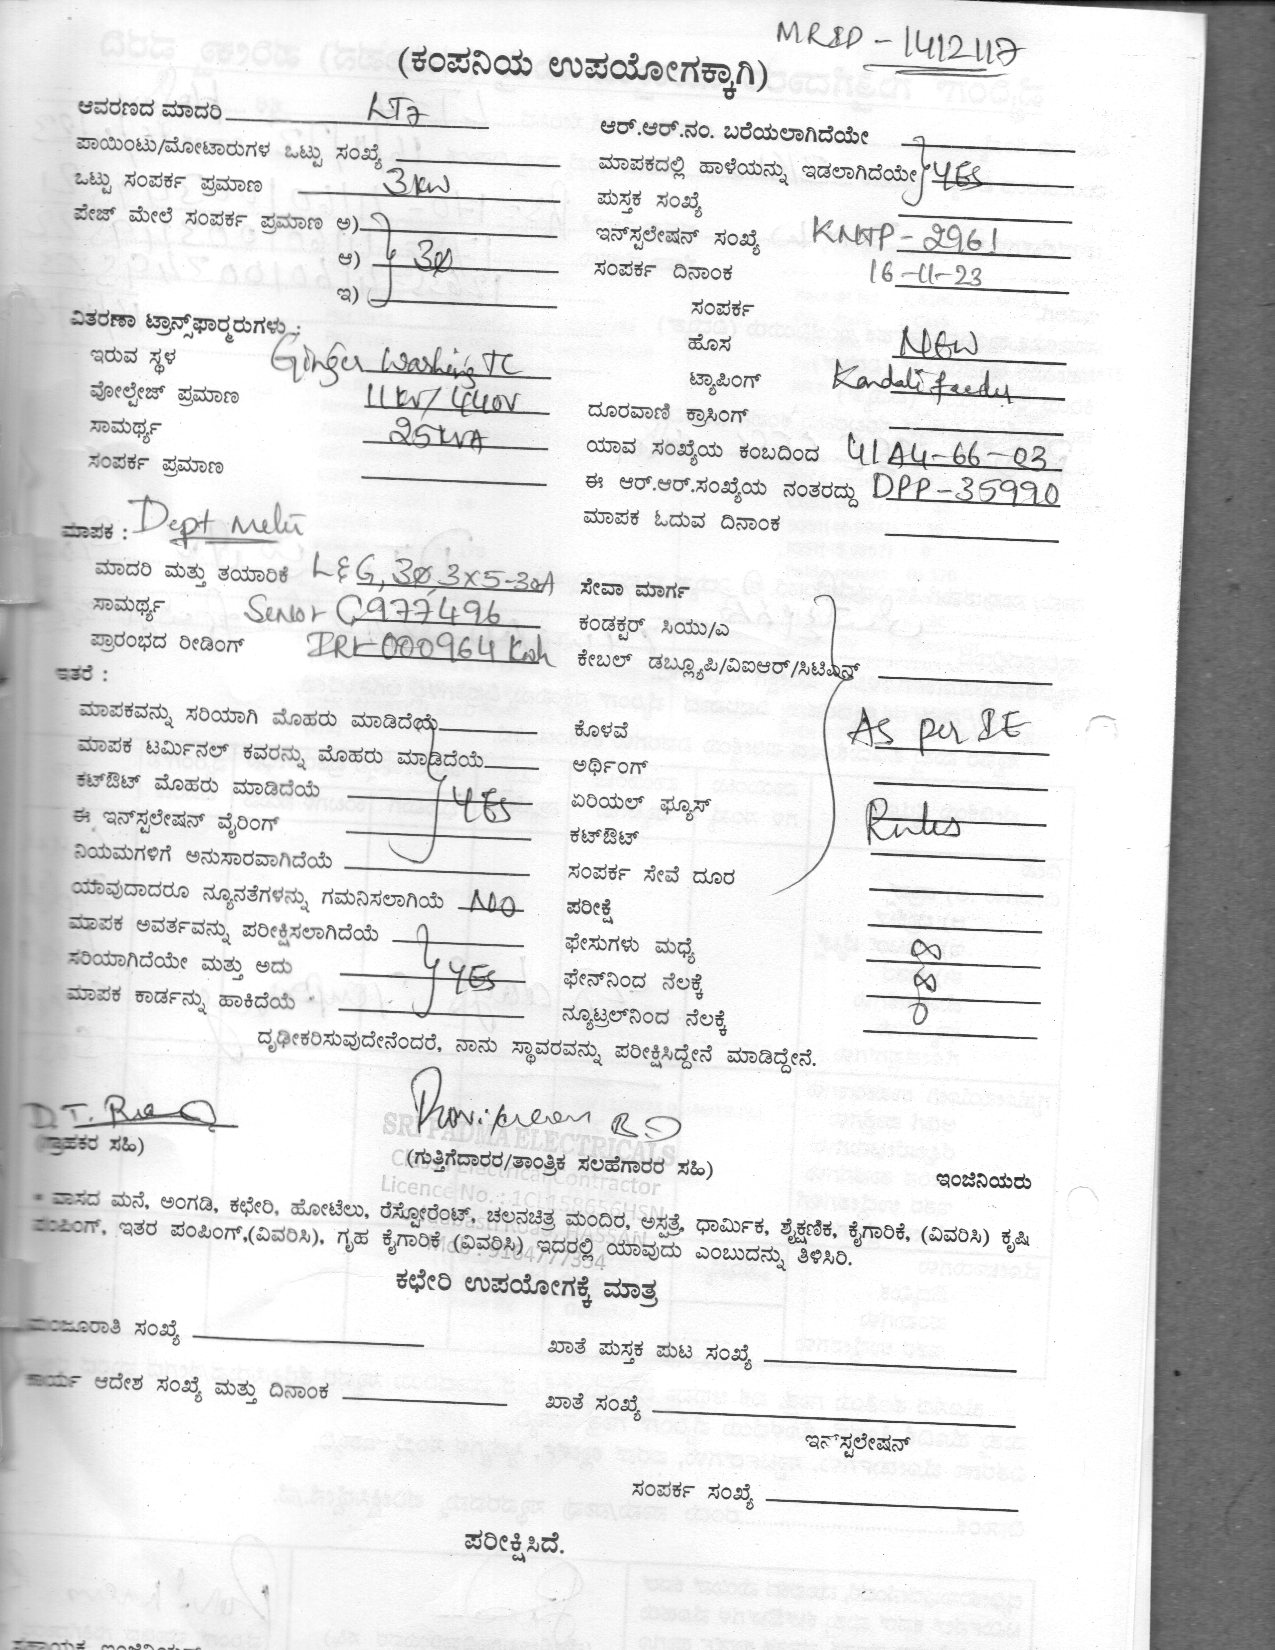 MRID - 1412117
(ಕಂಪನಿಯ ಉಪಯೋಗಕ್ಕಾಗಿ)
ಆವರಣದ ಮಾದರಿ LT7
ಪಾಯಿಂಟು/ಮೋಟಾರುಗಳ ಒಟ್ಟು ಸಂಖ್ಯೆ
ಒಟ್ಟು ಸಂಪರ್ಕ ಪ್ರಮಾಣ 3kw
ಪೇಜ್ ಮೇಲೆ ಸಂಪರ್ಕ ಪ್ರಮಾಣ ಅ)
ಆ) 3Ø
ಇ)
ವಿತರಣಾ ಟ್ರಾನ್ಸ್‌ಫಾರ್ಮರುಗಳು :
ಇರುವ ಸ್ಥಳ Ginger Washing TC
ವೋಲ್ಟೇಜ್ ಪ್ರಮಾಣ 11kv/440v
ಸಾಮರ್ಥ್ಯ 25kVA
ಸಂಪರ್ಕ ಪ್ರಮಾಣ
ಮಾಪಕ : Dept Meter
ಮಾದರಿ ಮತ್ತು ತಯಾರಿಕೆ L&G, 3Ø, 3x5-30A
ಸಾಮರ್ಥ್ಯ C977496
ಪ್ರಾರಂಭದ ರೀಡಿಂಗ್ 000964 Kwh
ಇತರೆ :
ಮಾಪಕವನ್ನು ಸರಿಯಾಗಿ ಮೊಹರು ಮಾಡಿದೆಯೆ
ಮಾಪಕ ಟರ್ಮಿನಲ್ ಕವರನ್ನು ಮೊಹರು ಮಾಡಿದೆಯೆ
ಕಟ್‌ಔಟ್ ಮೊಹರು ಮಾಡಿದೆಯೆ YES
ಈ ಇನ್‌ಸ್ಟಲೇಷನ್ ವೈರಿಂಗ್
ನಿಯಮಗಳಿಗೆ ಅನುಸಾರವಾಗಿದೆಯೆ
ಯಾವುದಾದರೂ ನ್ಯೂನತೆಗಳನ್ನು ಗಮನಿಸಲಾಗಿಯೆ NO
ಮಾಪಕ ಅವರ್ತವನ್ನು ಪರೀಕ್ಷಿಸಲಾಗಿದೆಯೆ
ಸರಿಯಾಗಿದೆಯೇ ಮತ್ತು ಅದು YES
ಮಾಪಕ ಕಾರ್ಡನ್ನು ಹಾಕಿದೆಯೆ
ಆರ್.ಆರ್.ನಂ. ಬರೆಯಲಾಗಿದೆಯೇ
ಮಾಪಕದಲ್ಲಿ ಹಾಳೆಯನ್ನು ಇಡಲಾಗಿದೆಯೇ YES
ಪುಸ್ತಕ ಸಂಖ್ಯೆ
ಇನ್‌ಸ್ಟಲೇಷನ್ ಸಂಖ್ಯೆ KNTP - 2961
ಸಂಪರ್ಕ ದಿನಾಂಕ 16-11-23
ಸಂಪರ್ಕ
ಹೊಸ NEW
ಟ್ಯಾಪಿಂಗ್ Kandali feeder
ದೂರವಾಣಿ ಕ್ರಾಸಿಂಗ್
ಯಾವ ಸಂಖ್ಯೆಯ ಕಂಬದಿಂದ 41A4-66-03
ಈ ಆರ್.ಆರ್.ಸಂಖ್ಯೆಯ ನಂತರದ್ದು DPP-35990
ಮಾಪಕ ಓದುವ ದಿನಾಂಕ
ಸೇವಾ ಮಾರ್ಗ
ಕಂಡಕ್ಟರ್ ಸಿಯು/ಎ
ಕೇಬಲ್ ಡಬ್ಲ್ಯೂಪಿ/ವಿಐಆರ್/ಸಿಟಿಎನ್
ಕೊಳವೆ As per IE
ಅರ್ಥಿಂಗ್
ಏರಿಯಲ್ ಫ್ಯೂಸ್ Rules
ಕಟ್‌ಔಟ್
ಸಂಪರ್ಕ ಸೇವೆ ದೂರ
ಪರೀಕ್ಷೆ
ಫೇಸುಗಳು ಮಧ್ಯೆ ∞
ಫೇಸ್‌ನಿಂದ ನೆಲಕ್ಕೆ ∞
ನ್ಯೂಟ್ರಲ್‌ನಿಂದ ನೆಲಕ್ಕೆ 0
ದೃಢೀಕರಿಸುವುದೇನೆಂದರೆ, ನಾನು ಸ್ಥಾವರವನ್ನು ಪರೀಕ್ಷಿಸಿದ್ದೇನೆ ಮಾಡಿದ್ದೇನೆ.
(ಗ್ರಾಹಕರ ಸಹಿ)
SRI PADMA ELECTRICALS
(ಗುತ್ತಿಗೆದಾರರ/ತಾಂತ್ರಿಕ ಸಲಹೆಗಾರರ ಸಹಿ)
ಇಂಜಿನಿಯರು
* ವಾಸದ ಮನೆ, ಅಂಗಡಿ, ಕಛೇರಿ, ಹೋಟೆಲು, ರೆಸ್ಟೋರೆಂಟ್, ಚಲನಚಿತ್ರ ಮಂದಿರ, ಅಸ್ಪತ್ರೆ, ಧಾರ್ಮಿಕ, ಶೈಕ್ಷಣಿಕ, ಕೈಗಾರಿಕೆ, (ವಿವರಿಸಿ) ಕೃಷಿ
ಪಂಪಿಂಗ್, ಇತರ ಪಂಪಿಂಗ್,(ವಿವರಿಸಿ), ಗೃಹ ಕೈಗಾರಿಕೆ (ವಿವರಿಸಿ) ಇದರಲ್ಲಿ ಯಾವುದು ಎಂಬುದನ್ನು ತಿಳಿಸಿರಿ.
ಕಛೇರಿ ಉಪಯೋಗಕ್ಕೆ ಮಾತ್ರ
ಮಂಜೂರಾತಿ ಸಂಖ್ಯೆ
ಖಾತೆ ಪುಸ್ತಕ ಪುಟ ಸಂಖ್ಯೆ
ಕಾರ್ಯ ಆದೇಶ ಸಂಖ್ಯೆ ಮತ್ತು ದಿನಾಂಕ
ಖಾತೆ ಸಂಖ್ಯೆ
ಇನ್‌ಸ್ಟಲೇಷನ್
ಸಂಪರ್ಕ ಸಂಖ್ಯೆ
ಪರೀಕ್ಷಿಸಿದೆ.